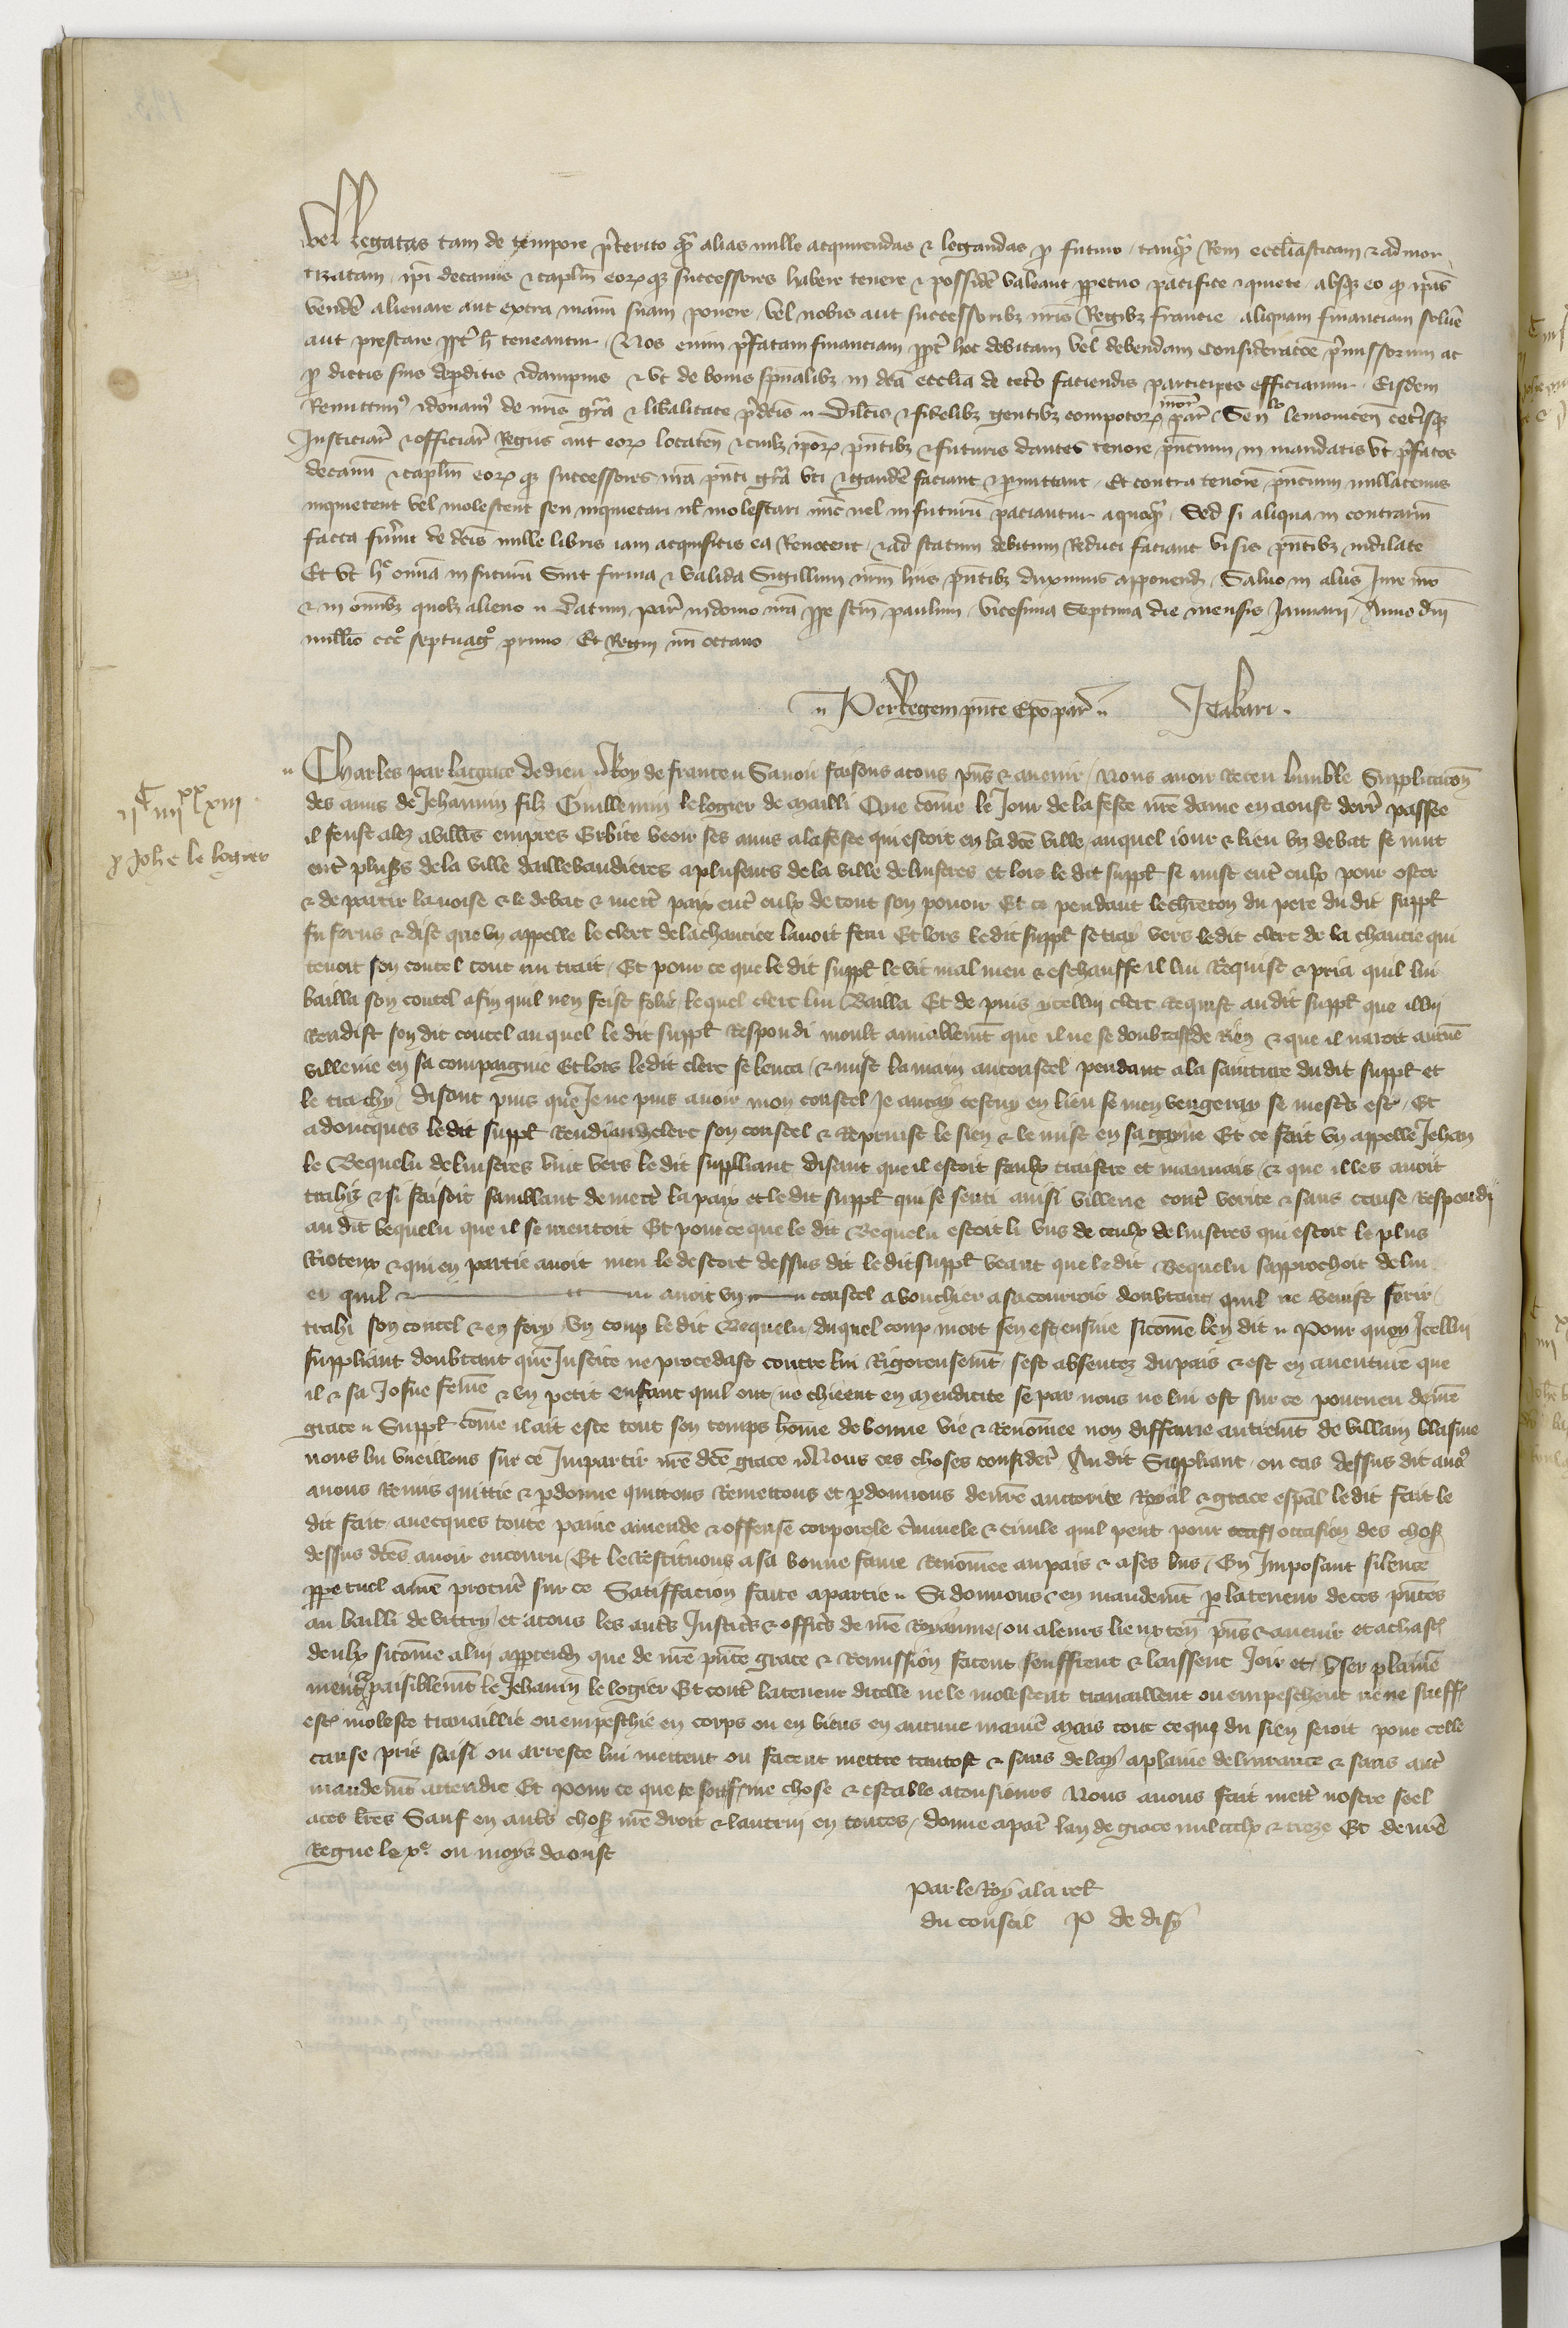 vel legatas tam de tempore p̃terito q̃ȝ alias mille acquirendas & legandas p futuro tanq̃ȝ Rem ecclĩasticam & admor
tizatam ip̃i decanus & capl̃m eorȝ qȝ successores habere tenere & possidẽ valeant ppetuo pacifice & quiete absqȝ eo q ip̃as
vendẽ alienare aut extra manũ suam ponere vel nobis aut successoribȝ nr̃is Regibȝ francie aliquam financiam solvẽ
aut prestare ppt̃ h̃ teneantur Nos enim p̃fatam financiam ppt̃ hoc debitam vel debendam consideracõe p̃missorum ac
p dictis suis depditis & dampnis & vt de bonis spũalibȝ in dc̃a ecclĩa de cet̃o faciendis participes efficiamur Eisdem
Remittim9 & donam9 de nr̃is gr̃a & lib̃alitate p̃dc̃is dilc̃is & fidelibȝ gentibȝ compotorȝ nr̃or̃ par̃ Sen lo lemovicen̄ cet̃isqȝ
Justiciar̃ & officiar̃ Regiis aut eorȝ locaten̄ & cuilȝ ip̃orȝ pñtibȝ & futuris dantes tenore pñcium in mandatis vt p̃fatos
decanũ & capl̃m eorȝ qȝ successores nr̃a pñti gr̃a vti & gaudẽ faciant & pmittant Et contra tenorẽ pñcium nullatenus
inquietent vel molestent seu inquietari vl̃ molestari nũc vel in futurũ paciantur a quoqȝ Sed si aliqua in contrariũ
facta fuer̃int de dc̃is mille libris iam acquisitis ea Revocent & ad statum debitum Reduci faciant visis pñtibȝ indilate
Et vt h̃ omĩa in futurũ sint firma & valida Sigillum nr̃m hiis pñtibȝ duximus apponend̃ Salvo in aliis Jure nr̃o
& in omĩbȝ quolȝ alieno Datum par̃ in domo nr̃a ppe sc̃m paulum vicesima Septima die mensis Januarii Anno dñi
mill̃io ccc° septuag° primo Et Regni nr̃i octavo
Per Regem pñte Epo par̃ J Tabari
Charles par la grace de dieu Roy de france Savoir faisons a tous pñs & avenir Nous avoir Receu lumble Supplicacõn
des amis de Jehannin filz Guillemin le logier de mailli Que cõme le Jour de la feste nr̃e dame en aoust derr̃ passee
il feust alez a villers empres Erbite veoir ses amis a la feste qui estoit en la dc̃e ville auquel iour & lieu vn debat se mut
ent̃ pluss̃s de la ville daillebaudieres a pluseurs de la ville de luistres et lors le dit suppl̃ se mist ent̃ eulx pour oster
& departir la noise & le debat & mett̃ paix ent̃ eulx de tout son povoir Et ce pendant le chieton du pere du dit suppl̃
fu ferus & dist que vn appelle le clerc de la chaucee lavoit feru Et lors le dit suppl̃ se tray vers le dit clerc de la chaucie qui
tenoit son coutel tout nu trait Et pour ce que le dit suppl̃ le vit mal meu & eschauffe il lui Requist & pria quil lui
bailla son coutel afin quil nen feist folie lequel clerc lui Bailla Et de puis ycellui clerc Requist au dit suppl̃ que il lui
Rendist son dit coutel au quel le dit suppl̃ Respondi moult amiablemẽt que il ne se doubtast de Rien & que il naroit aucũe
villenie en sa compaignie Et lors le dit clerc se leva & mist la main au coustel pendant a la sainture du dit suppl̃ et
le trachy disant puis que Je ne puis avoir mon coustel Je auray cestuy en lieu se men vengeray se mest̃s est Et
adoncques le dit suppl̃ Rendi au dclerc son coustel & Reprinst le sien & le mist en sa gayne Et ce fait vn appelle Jehan
le Bequelu de luistres vint vers le dit suppliant disant que il estoit faulx traistre et mauvais & que il les avoit
trahiz & si faisoit samblant de mett̃ la paix et le dit suppl̃ qui se senti ainsi villene cont̃ verite & sans cause Respondi
au dit bequelu que il se mentoit Et pour ce que le dit Bequelu estoit li vns de ceulx de luistres qui estoit le plus
Rioteux & qui en partie avoit meu le descort dessus dit le dit suppl̃ veant que le dit Bequelu sapprochoit de lui
et quil avoit vn coustel a bouchier a sa courroie doubtant quil ne venist ferir
trahi son coutel & en fery vn coup le dit Bequelu duquel coup mort sen est ensuie sicõme len dit Pour quoy Jcellui
suppliant doubtant que Justice ne procedast contre lui Rigoreusemẽt sest absentez du pais & est en aventure que
il & sa Josne femẽ & vn petit enfant quil ont ne chieent en mendicite se par nous ne lui est sur ce pourveu de nr̃e
grace Suppl̃ cõme il ait este tout son temps hom̃e de bonne vie & Renõmee non diffamie autremẽt de villain blasme
nous lui vueillons sur ce Jmpartir nr̃e dc̃e grace Nous ces choses consider̃ Au dit Suppliant ou cas dessus dit avõs
avons Remis quittie & pdonne quittons Remettons et pdonnons de nr̃e auctorite Royal & grace esp̃al le dit fait le
dit fait avecques toute paine amende & offense corporele c̃iminele & civile quil peut pour occasion des chosȝ
dessus dc̃es avoir encouru Et le Restituons a sa bonne fame Renõmee au pais & a ses biẽs En Jmposant silence
ppetuel a nr̃e procur̃ sur ce Satiffacion faite a partie Si donnons en mandemẽt p la teneur de ces pñtes
au bailli de vittry et a tous les aut̃s Justic̃s & offic̃s de nr̃e Royaume ou a leurs lieuxten̄ pñs & avenir et a chasc̃
deulx sicõme a lui appartend̃ que de nr̃e pñte grace & Remission facent seuffrent & laissent Joir et vser plainẽ
ment & paisiblemẽt le Jehannin le logier Et cont̃ la teneur dicelle ne le molestent travaillent ou empeschent ne ne sueffr̃
est̃ moleste travaillie ou empeschie en corps ou en biens en aucune manier̃ Mais tout ce que du sien seroit pour celle
cause pris saisi ou arreste lui mettent ou facent mettre tantost & sans delay a plaine delivrance & sans aut̃
mandemẽt attendre Et Pour ce que ce soit ferme chose & estable a tousiours Nous avons fait mett̃ nostre seel
a ces lr̃es Sauf en aut̃s chosȝ nr̃e droit & lautrui en toutes donne a par̃ lan de grace mil ccclx & treze Et de nr̃e
Regne le xe ou moys daoust
Par le Roy a la rel̃
du conseil P de disy
ijC iiijXX xiij
p Joh̃e le logier